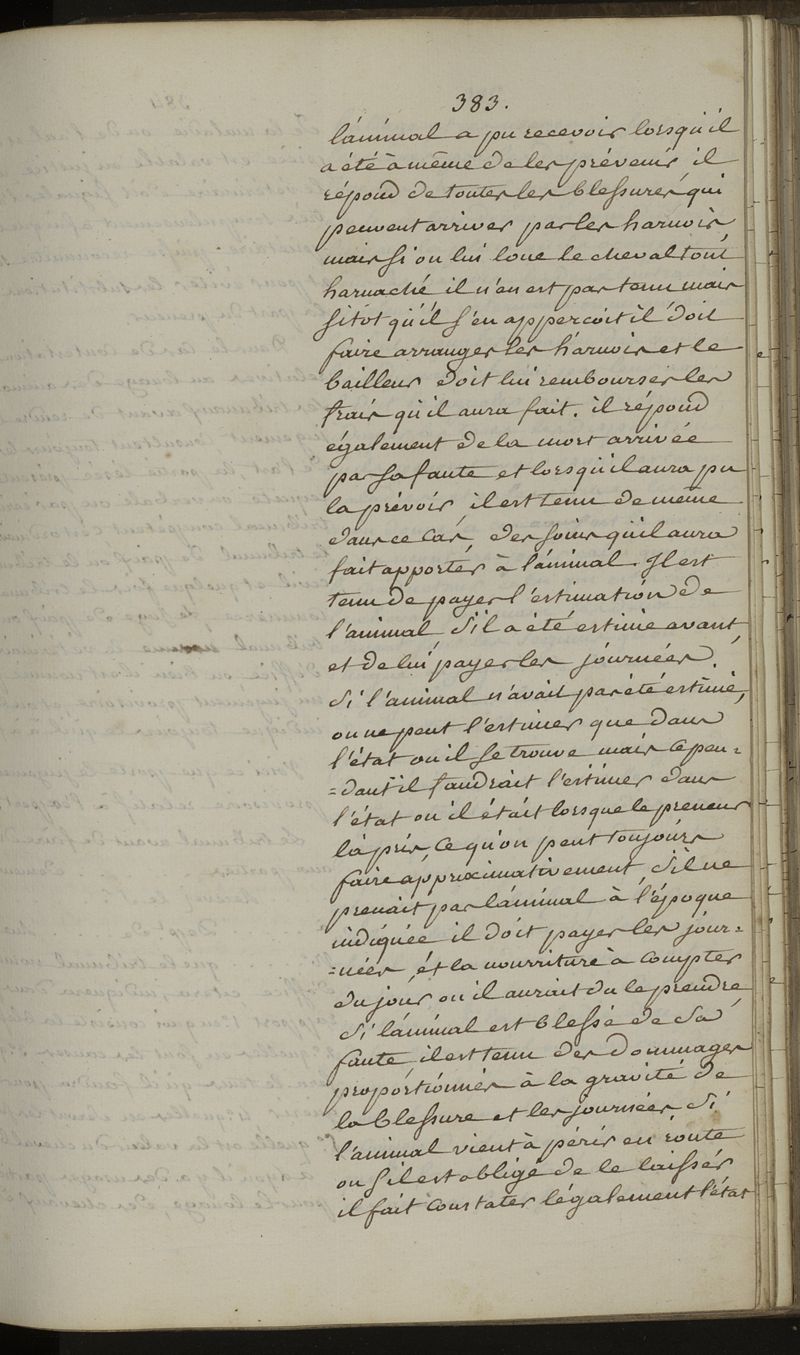 383.
l'animal a pu recevoir lorsqu'il
a été à même de les prévenir, il
répond de toutes les blessures qui
peuvent arriver par les harnois,
mais si on lui loue le cheval tout
harnaché il n'en est pas tenu mais
sitôt qu'il s'en apperçoit il doit
faire arranger les harnois et le
bailleur doit lui rembourser les
frais qu'il aura fait. il répond
également de la mort arrivée
par sa faute et lorsqu'il aura pu
la prévoir, il est tenu de même
dans ce cas, des soins qu'il aura
fait apporter à l'animal. Il est
tenu de payer l'estimation de
l'animal, s'il a été estimé avant,
et de lui payer les journées.
Si l'animal n'avait pas été estimé,
on ne peut l'estimer que dans
l'état ou il se trouve mais cepen=
=dant il faudrait l'estimer dans
l'état ou il était lorsque le preneur
l'a pris, ce qu'on peut toujours
faire approximativement, s'il ne
prenait pas l'animal à l'époque
indiquée il doit payer les jour=
=nées, et la nourriture à compter
du jour ou il aurait du le prendre
Si l'animal est blessé de sa
faute, il est tenu des dommages
proportionnés à la gravité de
la blessure et les journées. Si
l'animal vient à périr en route
ou s'il est obligé de le laisser
il fait constater légalement l'état